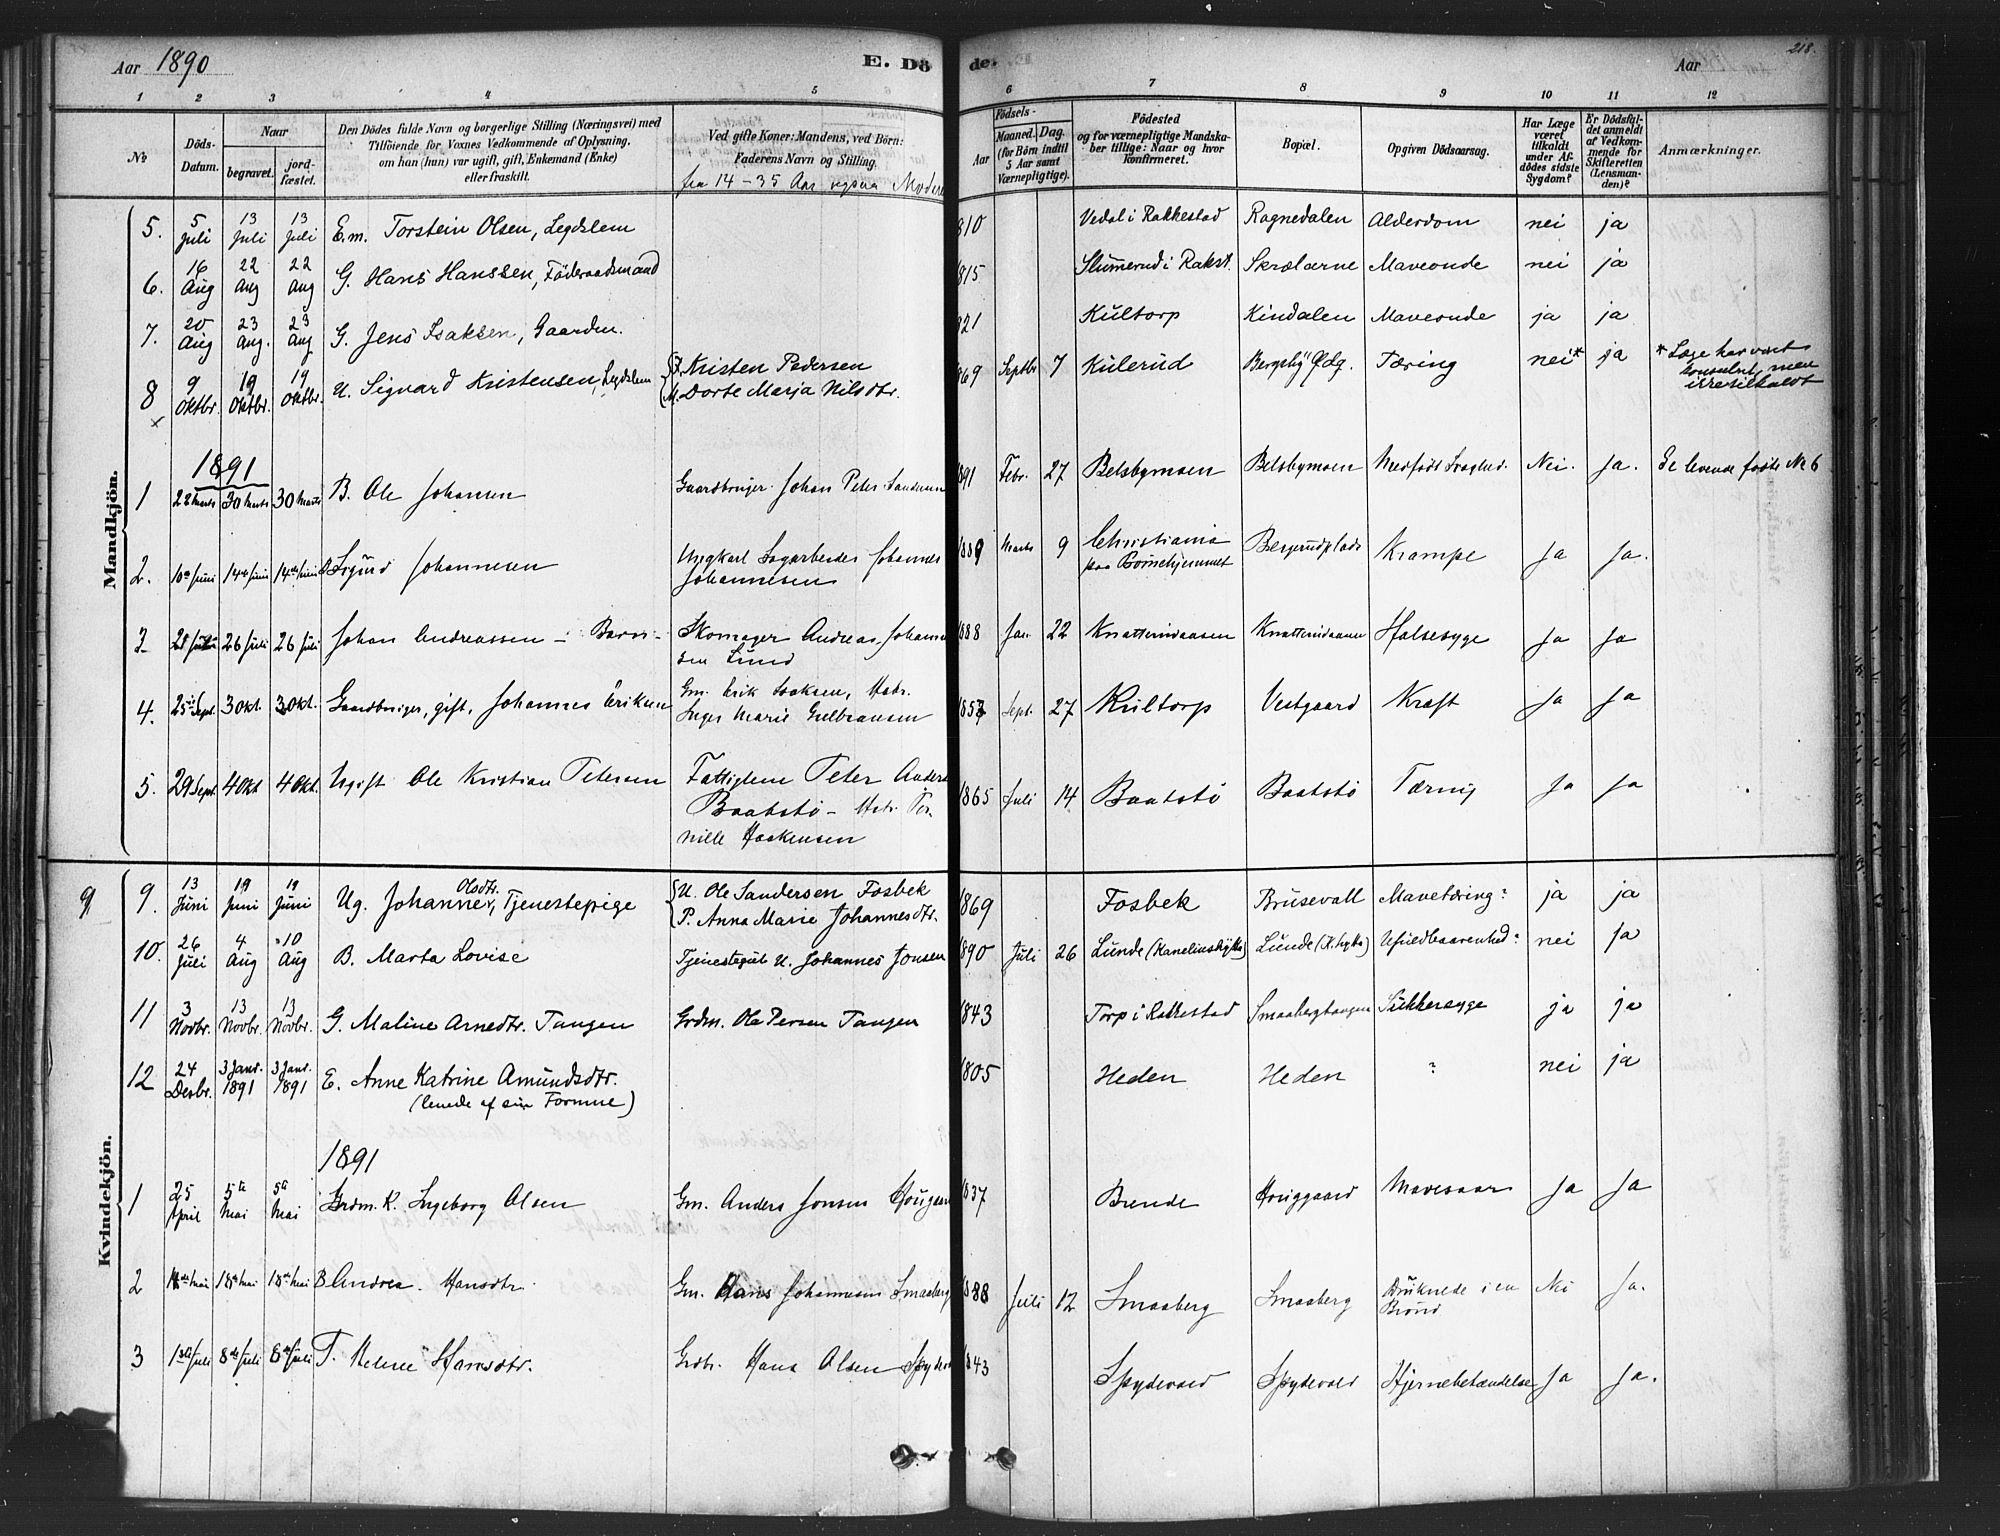 Aar 1890
E. Dö
de.
Aar
218.
1 2 3 4 5 6 7 8 9 10 11 12
No
Döds-Datum.
Naar
begravet.
jord-fæstet.
Den Dödes fulde Navn og borgerlige Stilling (Næringsvei) med
Tilföiende for Voxnes Vedkommende af Oplysning,
om han (hun) var ugift, gift, Enkemand (Enke)
eller fraskilt.
Ved gifte Koner: Mandens, ved Börn:
Faderens Navn og Stilling.
fra 14-35 Aar ogsaa Modere
Födsels-
Aar
Maaned. Dag.
(for Börn indtil
5 Aar samt
Værnepligtige).
Födested
og for værnepligtige Mandska-
ber tillige: Naar og hvor
Konfirmeret.
Bopæl.
Opgiven Dödsaarsag.
Har Læge
været
tilkaldt
under Af-
dödes sidste
Sygdom?
Er Dödsfal-
det anmeldt
af Vedkom-
mende for
Skifteretten
(Lensman-
den)?
Anmærkninger.
Mandkjön.
5. 5 Juli 13 Juli 13 Juli E.m. Torstein Olsen, Legdslem 810 Vedal i Rakkestad Ragnedalen Alderdom nei ja
6. 16 Aug 22 Aug 22 Aug G. Hans Hanssen, Föderaadsmand 815 Slumerud i Rakst. Skrælarne Maveonde nei ja
7. 20 Aug 23 Aug. 23 Aug G. Jens Isaksen, Gaardm. 821 Kultorp Kindalen Maveonde ja ja
8 9 Oktbr. 19 Oktbr. 19 Oktbr. U. Sigvard Kristensen, Legdslem F. Kristen Pedersen
M. Dorte Marja Nilsdtr. 869 Septbr 7 Kulerud Bergsby Ødg. Tæring nei* ja * Læge har vært
konsulert, men
ikke tilkaldt
1891
1 22 Marts 30 Marts 30 Marts B. Ole Johansen Gaardbruger Johan Peter 891 Febr. 27 Belsbymoen Belsbymoen Medfödt Svaghed. Nei. Ja. Se levende födte No 6
2. 10de Juni 14de Juni 14de Juni B Sigurd Johannesen Ungkarl Sagarbeider Johannes
Johannesen 1889 Marts 9 Christiania
paa Börnehjemmet Bergerudplads Krampe Ja Ja.
3 26 Juli 26 Juli Johan Andreassen - Barn - Skomager Andreas Johann
sen Lund 1888 Jan. 22 Halssyge Ja Ja
4. 25de Sept. 3 Okt. 3 Okt. Gaardbruger, gift, Johannes Eriksen Gm. Erik Isaksen, Hstr.
Inger Marie Gulbransen 1857 Sept. 27 Kultorp Vestgaard Kræft Ja Ja
5. 29 Sept. 4 Okt 4 Okt. Ugift Ole Kristian Petersen Fattiglem Peter Anders
Baatstö - Hstr. Per-
nille Haakensen 1865 Juli 14 Baatstö Baatstö Tæring Ja Ja
Kvindekjön.
9 9. 13 Juni 19 Juni 19 Juni Ug. Johanne Olsdtr., Tjenestepige U. Ole Sandersen Fosbek
P. Anna Marie Johannesdtr. 1869 Fosbek Brusevall Mavetæring? ja ja
10. 26 Juli 4 Aug 10 Aug B. Marta Lovise Tjenestegut U. Johannes Jonsen 890 Juli 26 Lunde (Kanelinshytta) Lunde (K.hytta) Ufuldbaarenhed? nei ja
11 3 Novbr. 13 Novbr. 13 Novbr. G. Maline Arnedtr. Tangen Grdm. Ole Persen Tangen 1843 Torp i Rakkestad Smaabergtangen Sukkersyge ja ja
12 24 Desbr. 3 Janr. 1891 3 Janr. 1891 E. Anne Katrine Amundsdtr.
(levede af sin Formue) 1805 Heden Heden ? nei ja
1891
1 25 April 5te Mai 5te Mai Grdm. K. Ingeborg Olsen Gm. Anders Jonsen 837 Brende Houggaard Mavesaar Ja Ja
2 18de Mai 18de Mai B Andrea Hansdtr. Gm. Hans Johannesen Smaaberg 1888 Juli 12 Smaaberg Smaaberg Druknede i en
Brönd Nei Ja.
3 1ste Juli 8de Juli 8de Juli T. Helene Hansdtr. Grdbr. Hans Olsen 843 Spydevold Spydevold Hjernebetændelse Ja Ja.